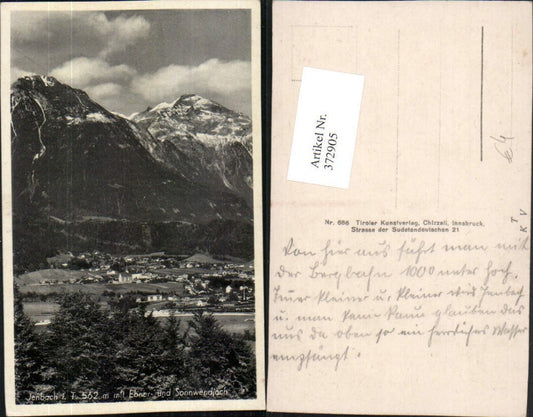 Jenbach i. T. 562 m mit Ebner- und Sonnwendjoch
Artikel Nr.
372905
Nr. 686 Tiroler Kunstverlag, Chizzali, Innsbruck,
Strasse der Sudetendeutschen 21
T
K V
Von hier aus fährt man mit
der Bergbahn 1000 meter hoch,
Immer kleiner u. kleiner wird Jenbach
u. man kann kaum glauben das
uns da oben so ein herrliches Wasser
empfängt.